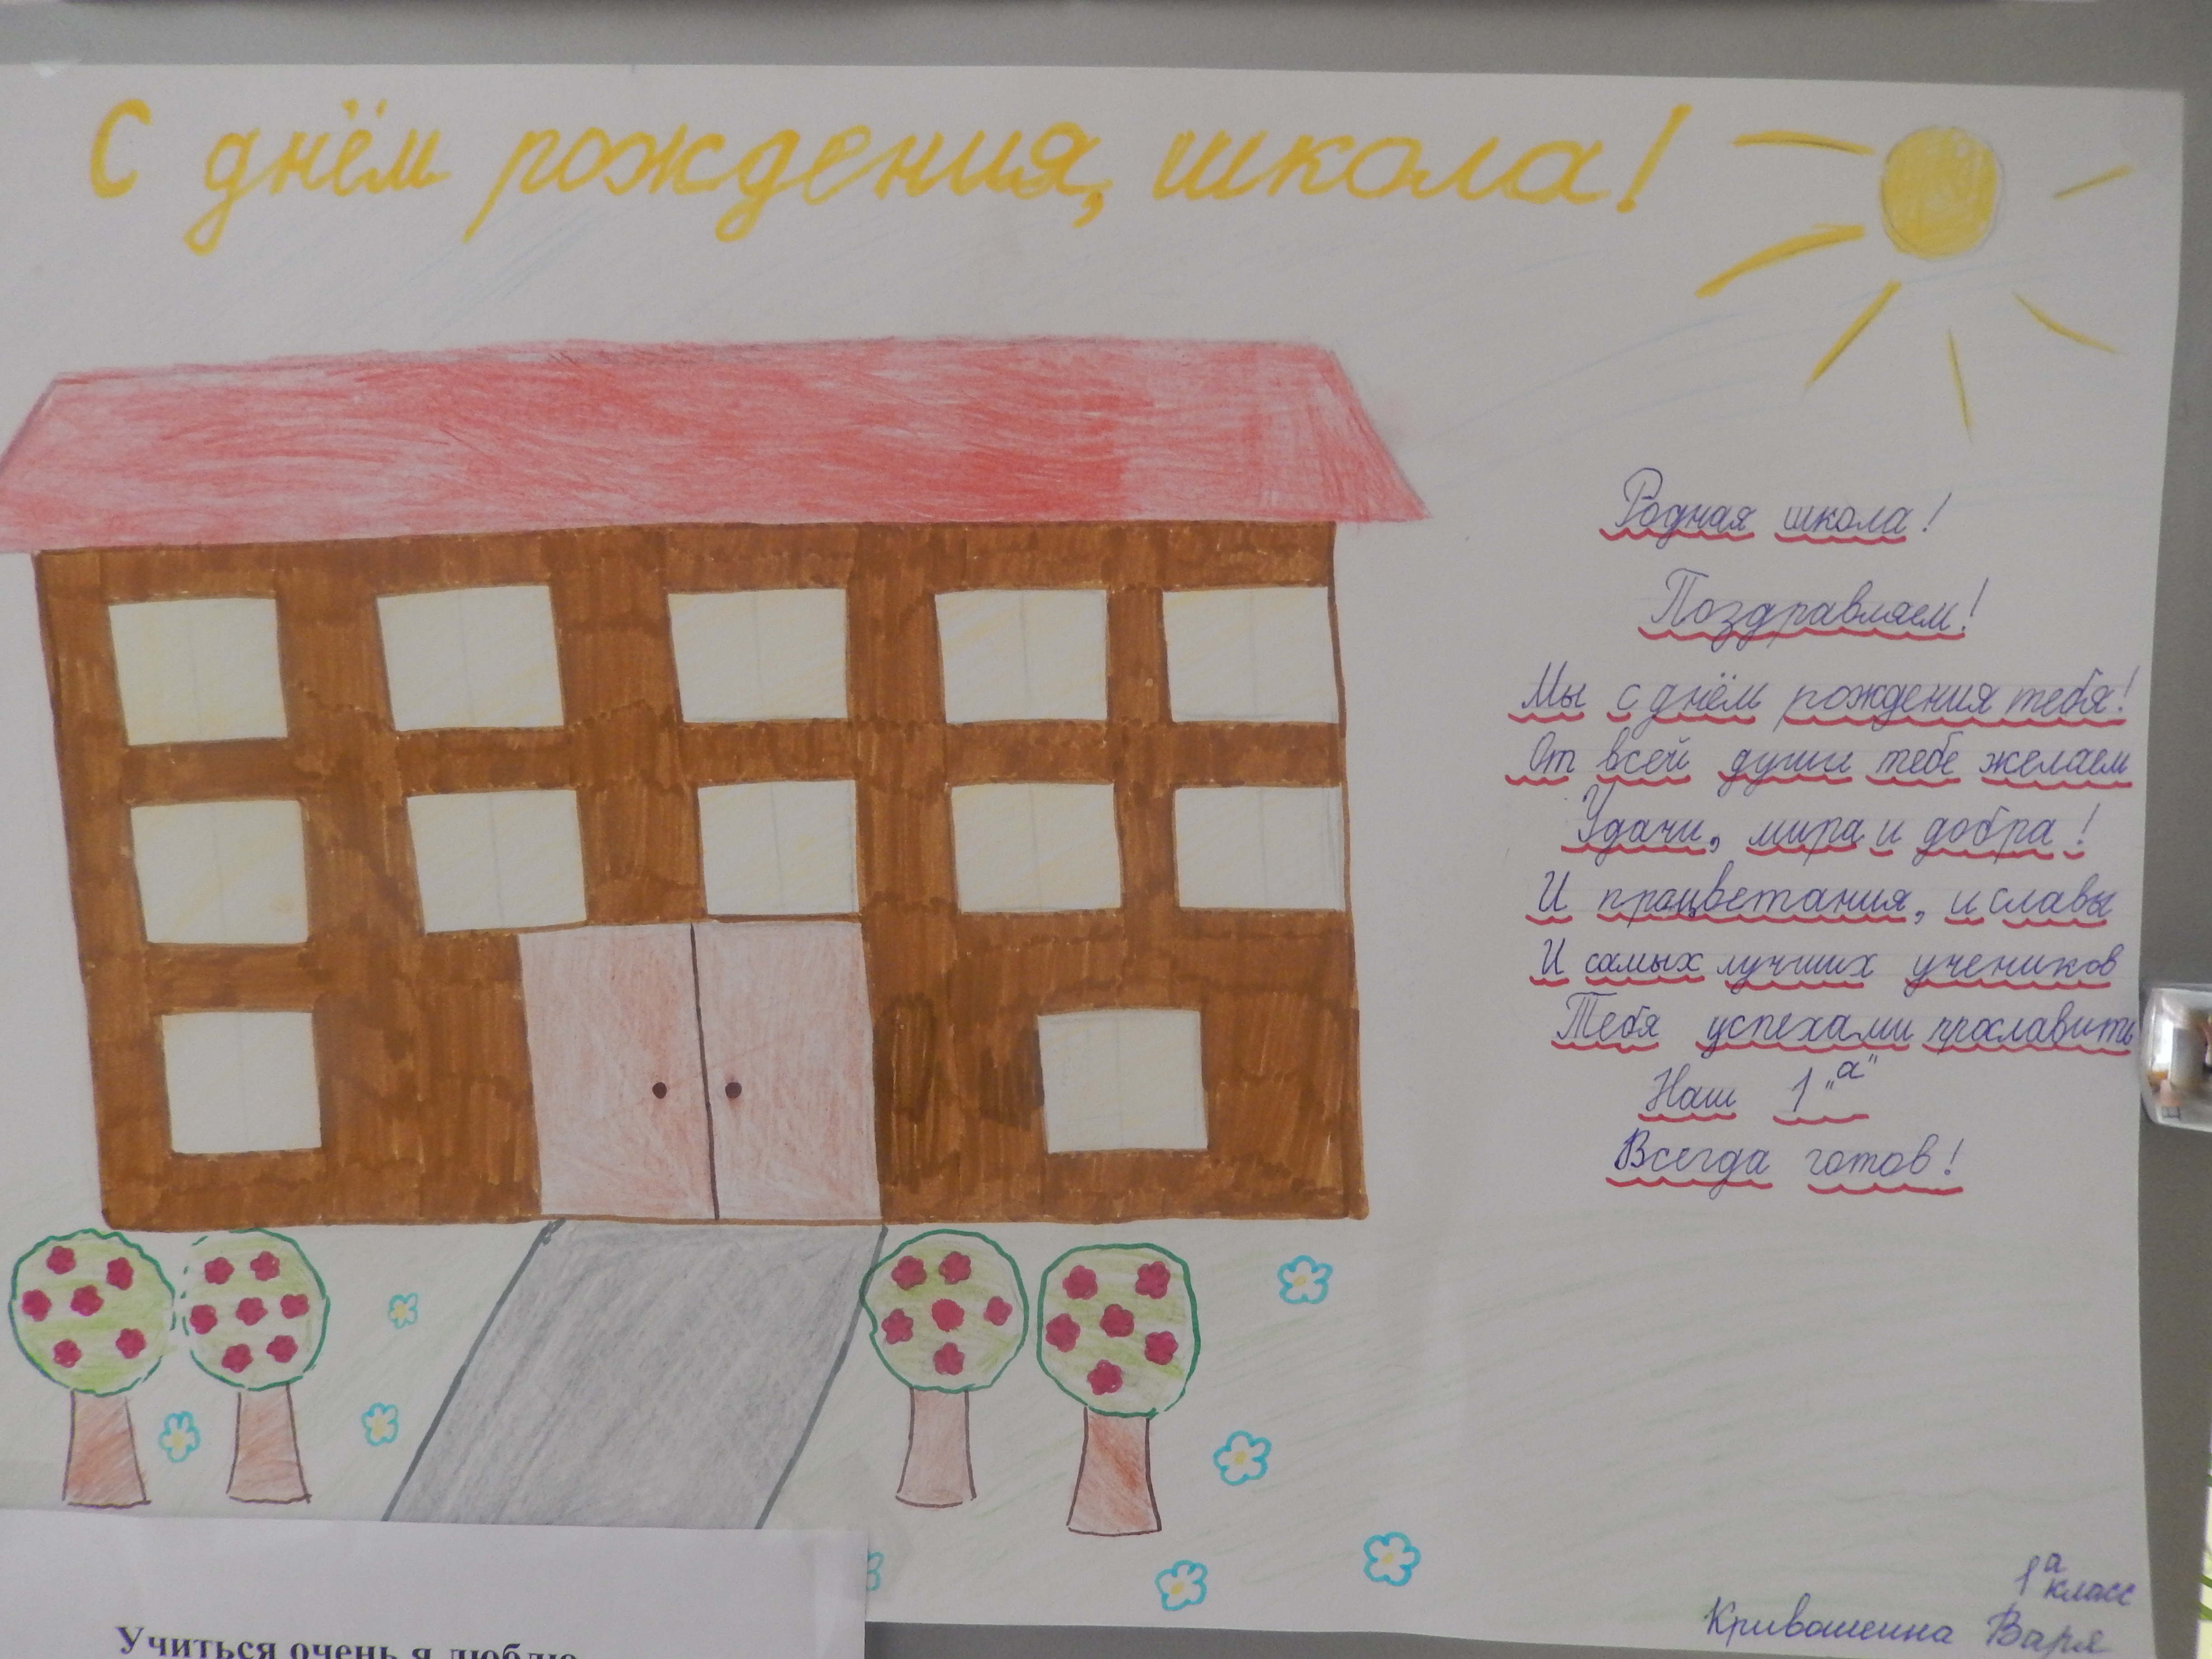 С днём рождения, школа!
Родная школа!
Поздравляем!
Мы с днём рождения тебя!
От всей души тебе желаем
Удачи, мира и добра!
И процветания, и славы
И самых лучших учеников
Тебя успехами прославить
Наш 1 "а"
Всегда готов!
1а класс
Кривошеина Варя
Учиться очень я люблю